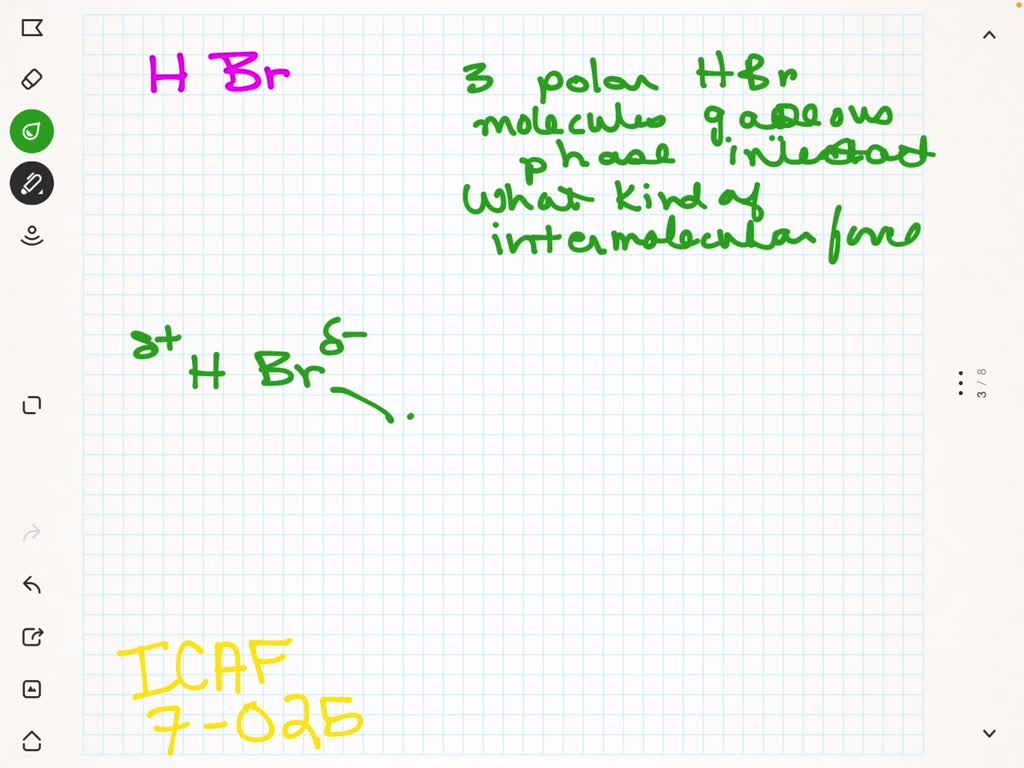 H Br
3 polar HBr
molecules gaseous
phase interact
What kind of
intermolecular force
δ+ H Br δ-
ICAF
7-025
3 / 8